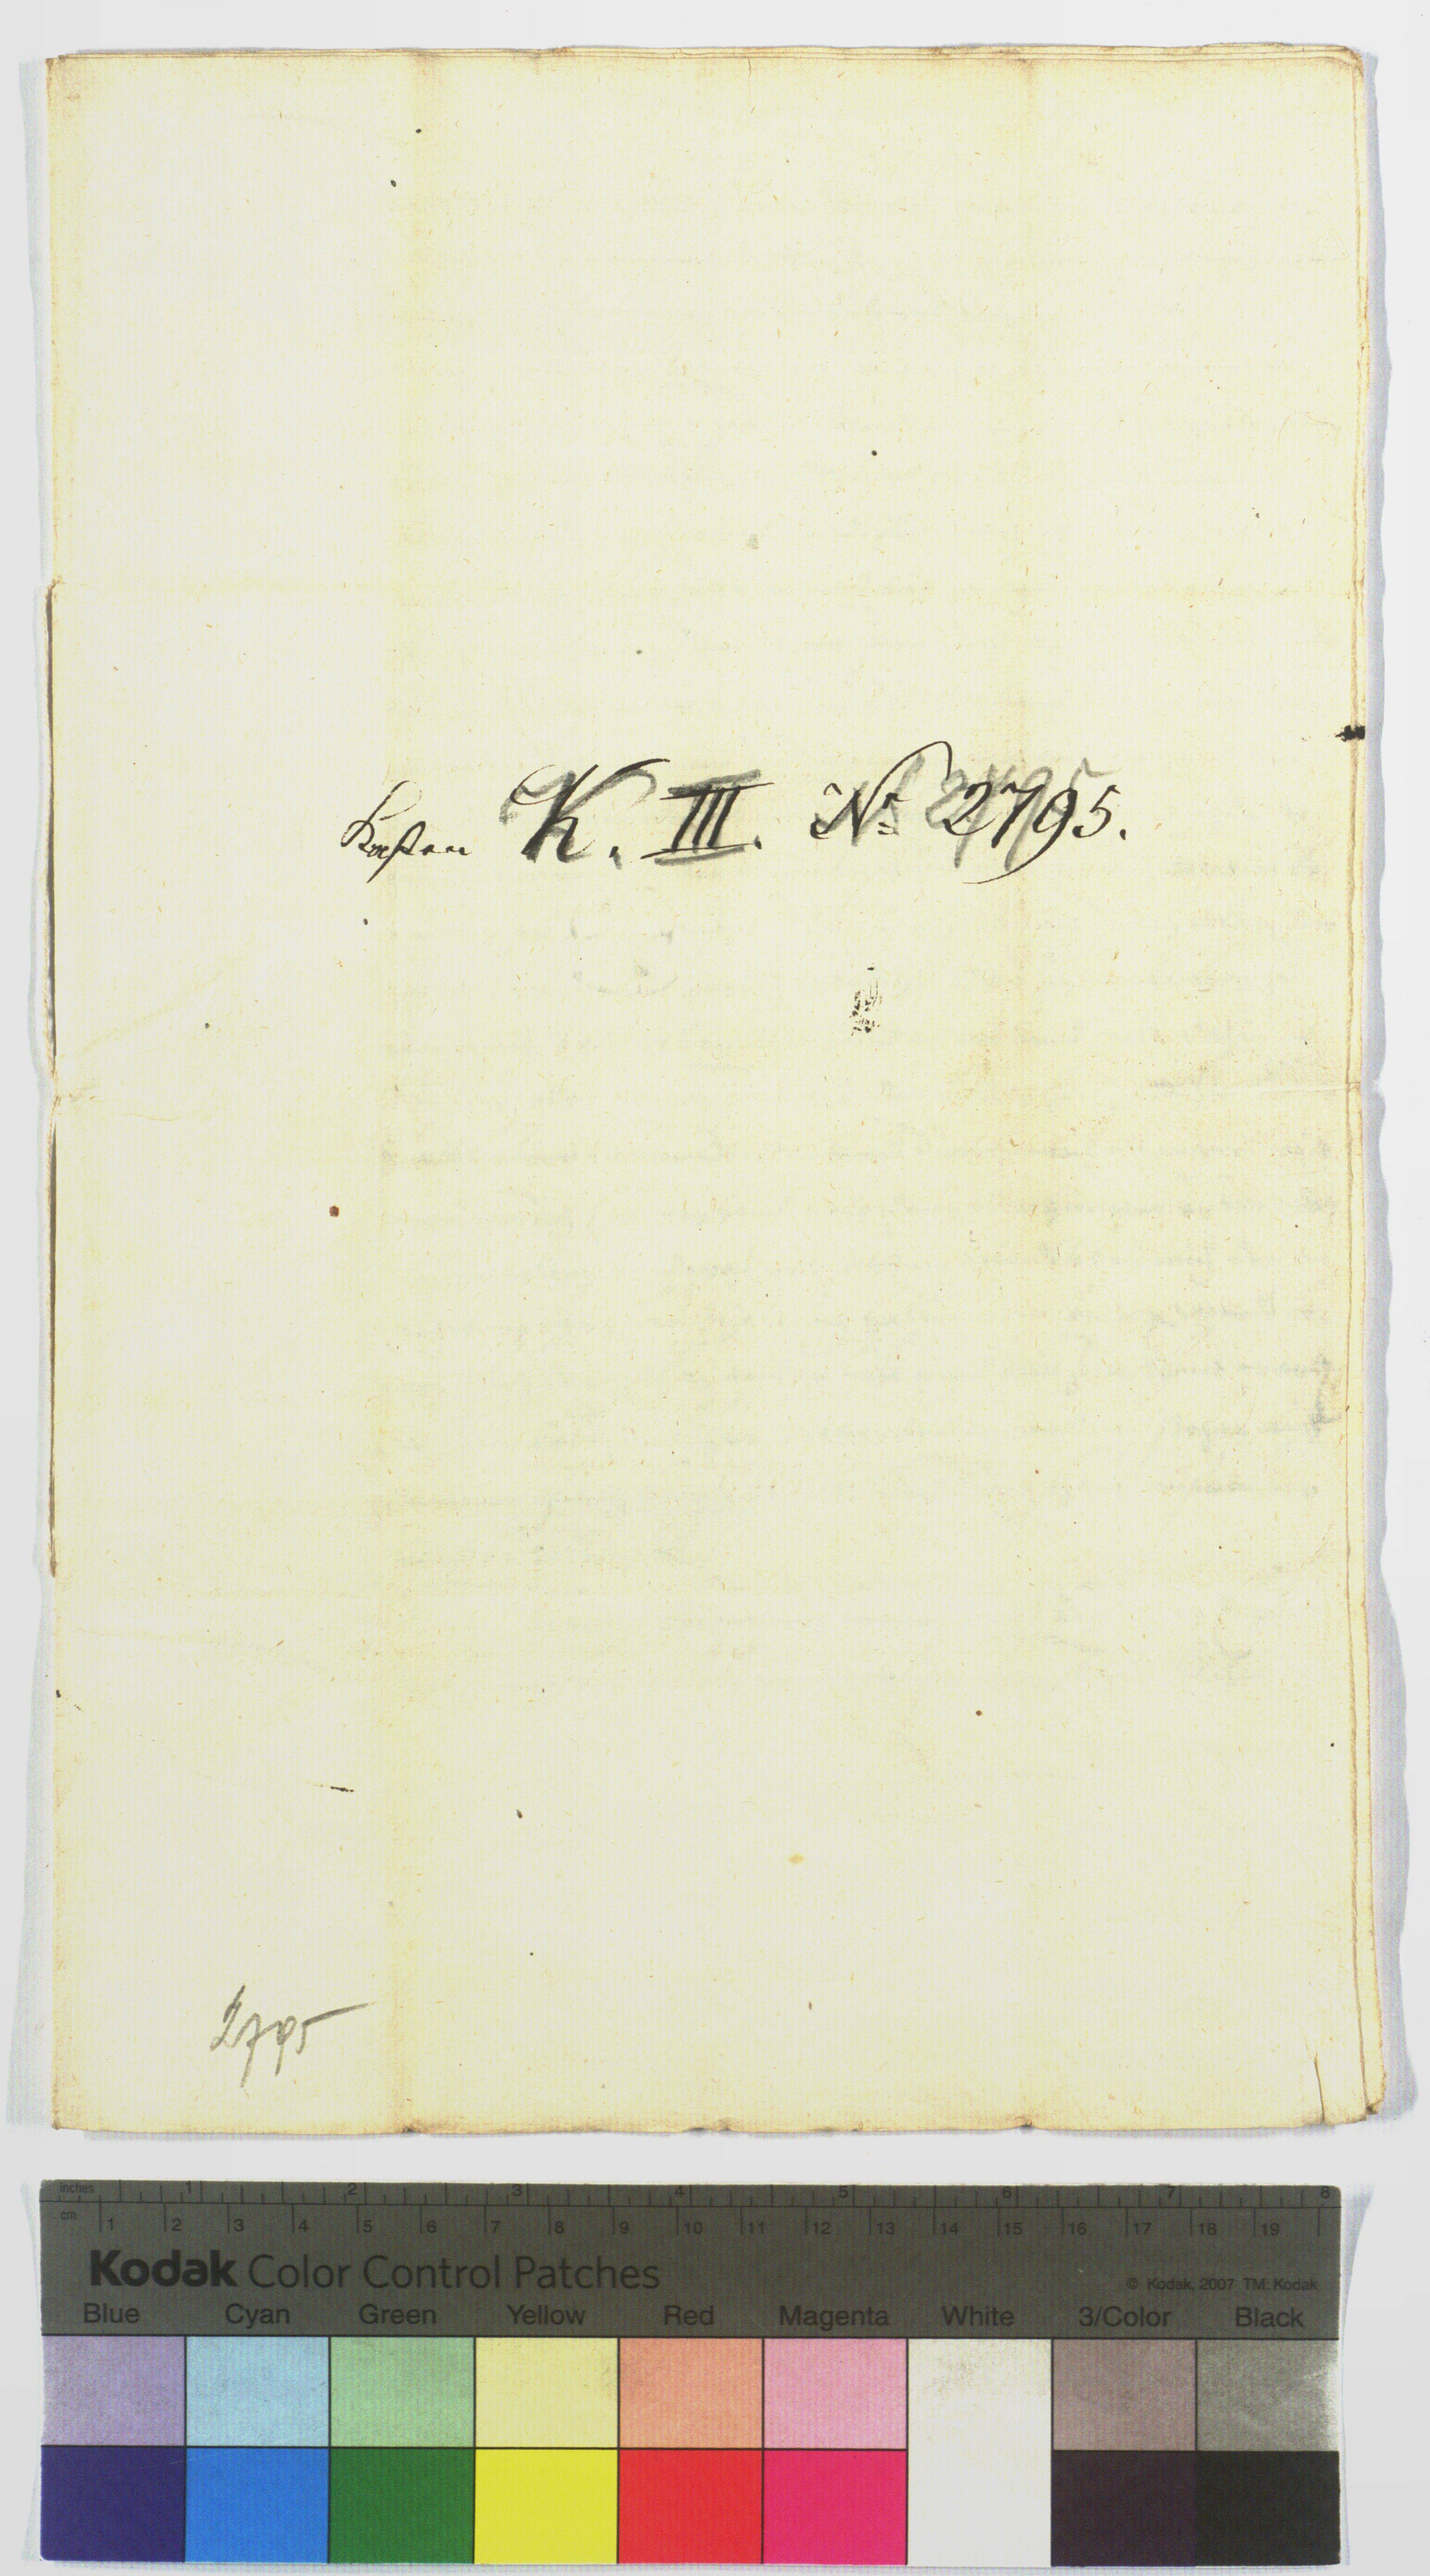 Kasten K. III. No 2795.
2795
inches 1 2 3 4 5 6 7 8
cm 1 2 3 4 5 6 7 8 9 10 11 12 13 14 15 16 17 18 19
Kodak Color Control Patches
© Kodak, 2007 TM: Kodak
Blue Cyan Green Yellow Red Magenta White 3/Color Black